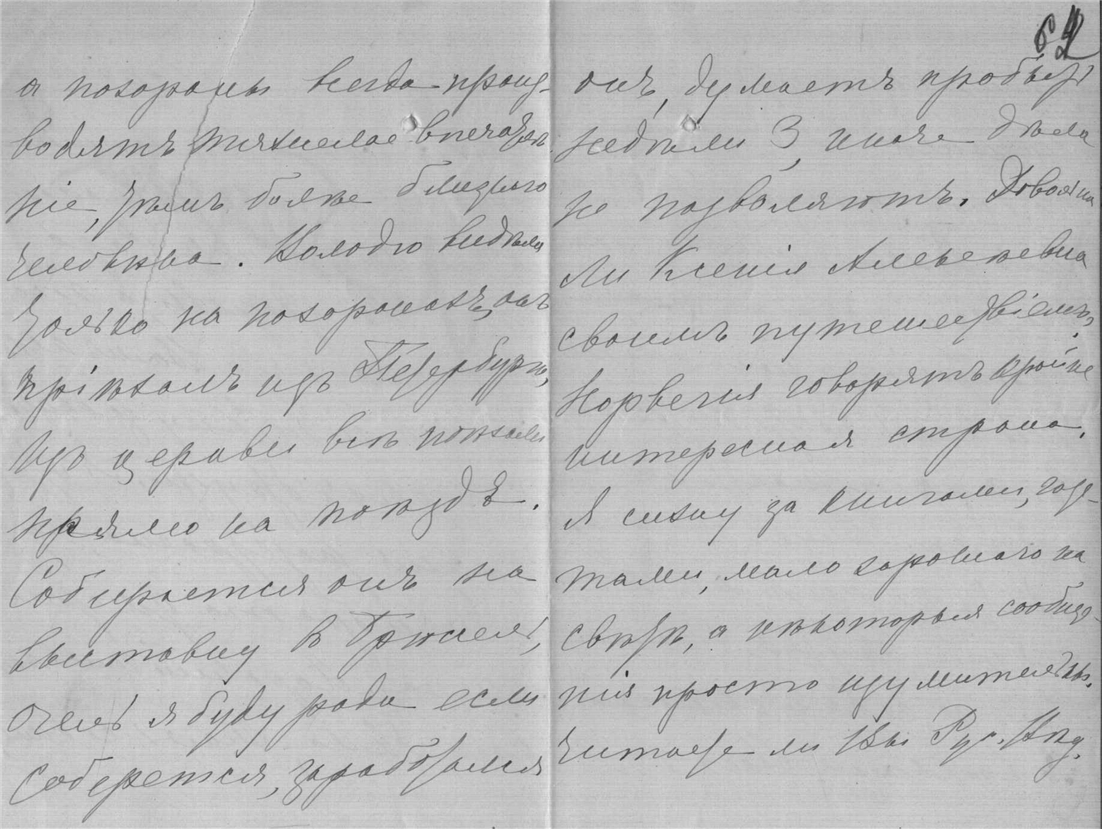 62
а похороны всегда произ-
водятъ тяжелое впечатле-
ніе, тѣмъ болѣе близкаго
человѣка. Володю видѣли
только на похоронахъ, онъ
пріѣхалъ изъ Петербурга,
изъ церкви всѣ поѣхали
прямо на поѣздъ.
Собирается онъ на
выставку в Брюссель,
очень я буду рада если
соберется, заработался
онъ, думаетъ пробыть
недѣли 3, иначе дѣла
не позволяютъ. Довольна
ли Ксенія Алексѣевна
своимъ путешествіемъ,
Норвегія говорятъ крайне
интересная страна.
Я сижу за книгами, газе-
тами, мало хорошаго на
свѣтѣ, а нѣкоторыя сообще-
нія просто изумительны.
Читаете ли Вы Рус. Вѣд.